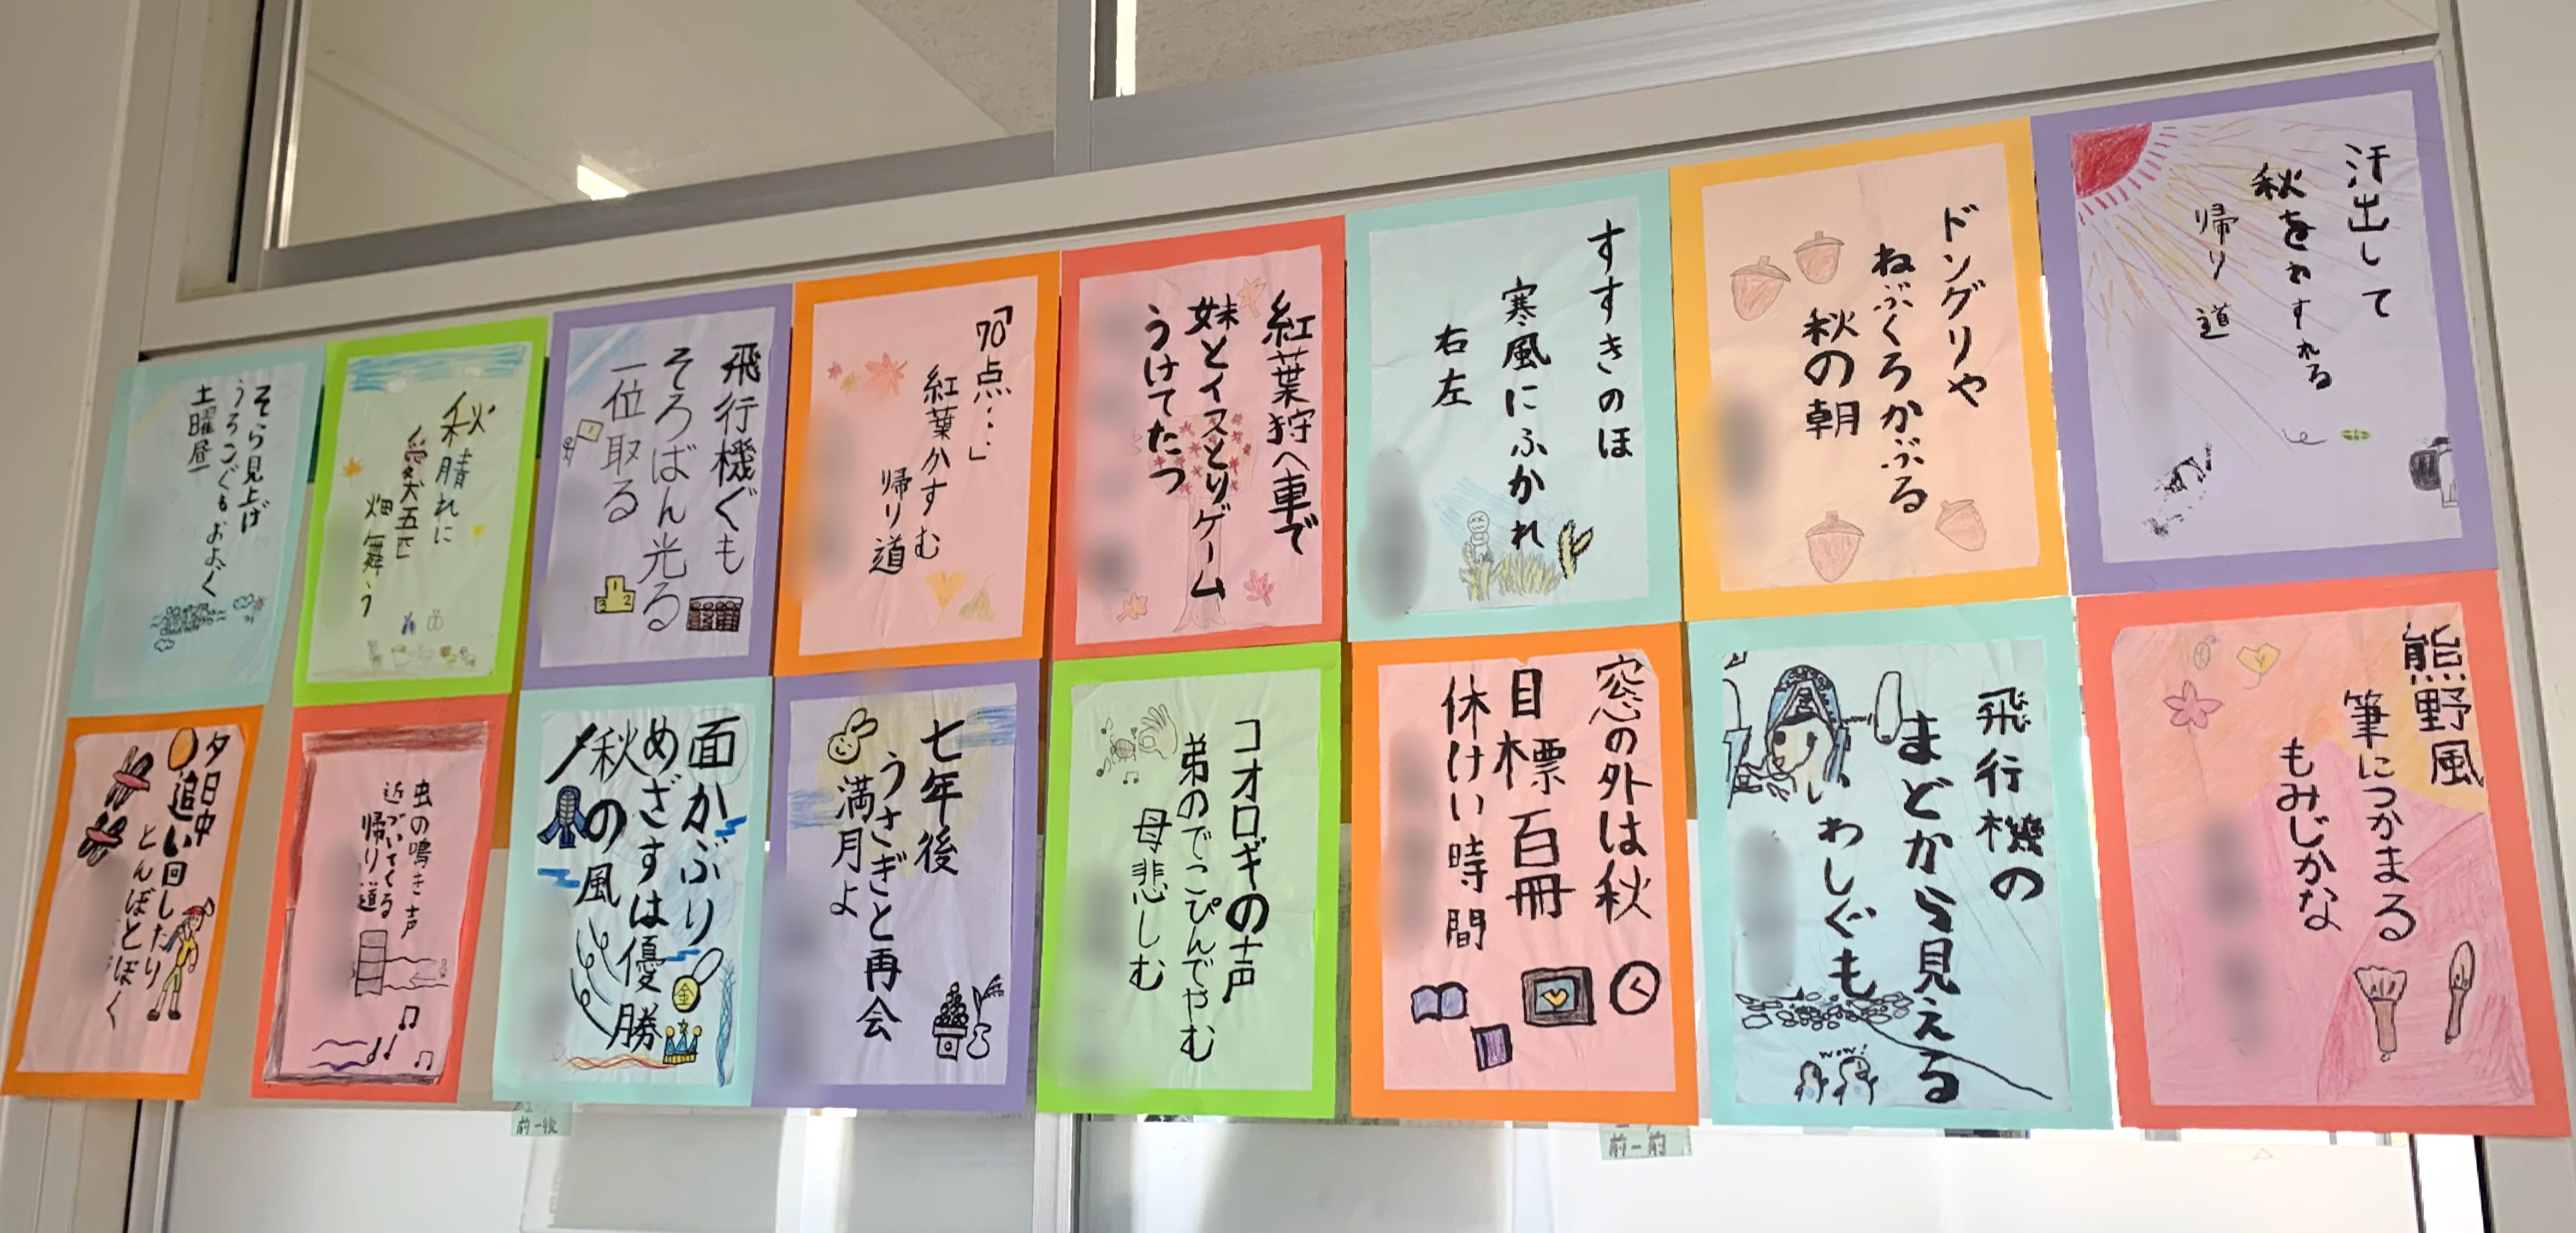 汗出して
秋をわすれる
帰り道
ドングリや
ねぶくろかぶる
秋の朝
すすきのほ
寒風にふかれ
右左
紅葉狩へ車で
妹とイスとりゲーム
うけてたつ
「70点…」
紅葉かすむ
帰り道
飛行機ぐも
そろばん光る
一位取る
秋晴れに
愛犬五匹
畑舞う
そら見上げ
うろこぐもおよぐ
土曜昼
熊野風
筆につかまる
もみじかな
飛行機の
まどから見える
いわしぐも
wow!
窓の外は秋
目標百冊
休けい時間
コオロギの声
弟のでこぴんでやむ
母悲しむ
七年後
うさぎと再会
満月よ
面かぶり
めざすは優勝
秋の風
金
虫の鳴き声
近づいてくる
帰り道
夕日中
追い回したり
とんぼとぼく
前-後
前-前